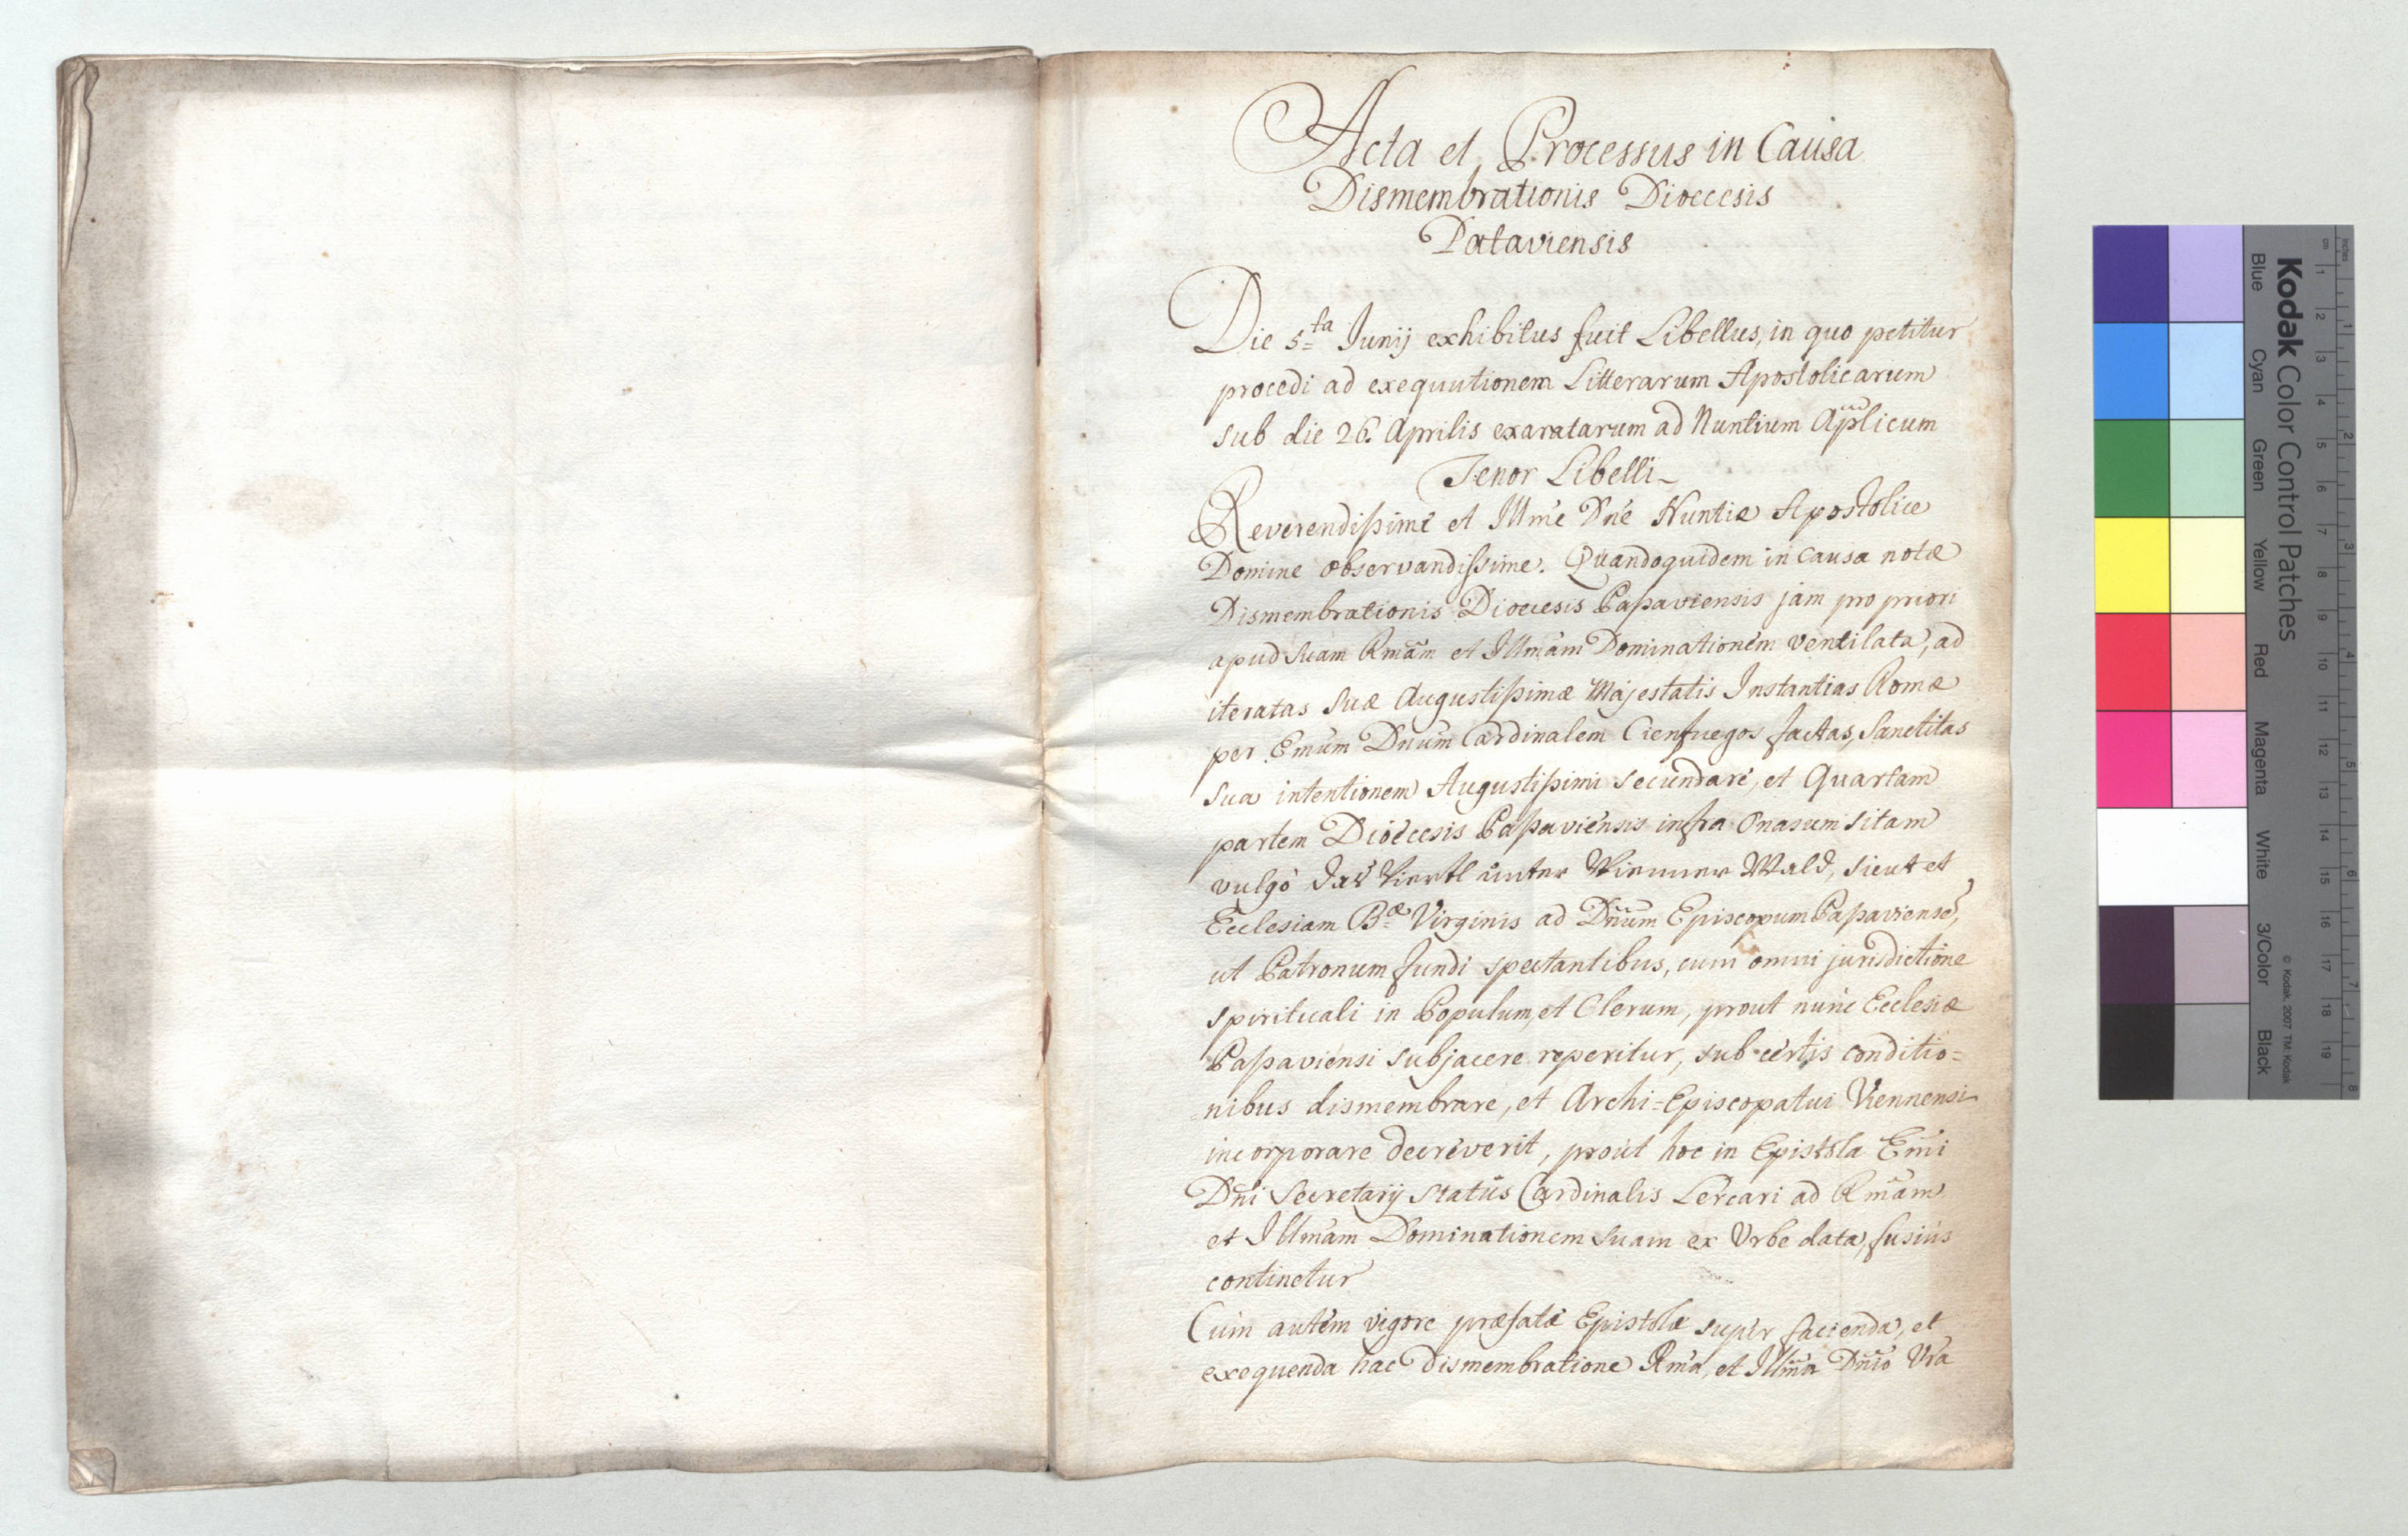 Acta et Processus in Causa
Dismembrationis Dioecesis
Pataviensis
Die 5ta Junij exhibitus fuit Libellus, in quo petitur
procedi ad exequutionem Litterarum Apostolicarum
sub die 26. Aprilis exaratarum ad Nuntium Aplicum
Tenor Libelli
Reverendißime et Illme Dne Nuntie Apostolice
Domine observandißime. Quandoquidem in causa notæ
Dismembrationis Dioecesis Paßaviensis jam pro priori
apud suam Rmam et Illmam Dominationem ventilata, ad
iteratas suæ Augustißimæ Majestatis Instantias Romæ
per Emum Dnum Cardinalem Cienfuegos factas, Sanctitas
sua intentionem Augustißimi secundare, et Quartam
partem Dioecesis Paßaviensis infra Onasum sitam
vulgò das Viertl unter Wienner Wald, sicut et
Ecclesiam Bæ Virginis ad Dnum Episcopum Paßaviense,
ut Patronum fundi spectantibus, cum omni jurisdictione
spirituali in Populum, et Clerum, prout nunc Ecclesiæ
Paßaviensi subjacere reperitur, sub certis conditio=
nibus dismembrare, et Archi=Episcopatui Viennensi
incorporare decreverit, prout hoc in Epistola Emi
Dni Secretarij Statûs Cardinalis Lercari ad Rmam
et Illmam Dominationem suam ex Urbe data, fusius
continetur
Cum autem vigore præfatæ Epistolæ super facienda, et
exequenda hac Dismembratione Rma, et Illma Dnio Vra
Kodak Color Control Patches
Blue
Cyan
Green
Yellow
Red
Magenta
White
3/Color
Black
© Kodak, 2007 TM: Kodak
cm 1 2 3 4 5 6 7 8 9 10 11 12 13 14 15 16 17 18 19
inches 1 2 3 4 5 6 7 8